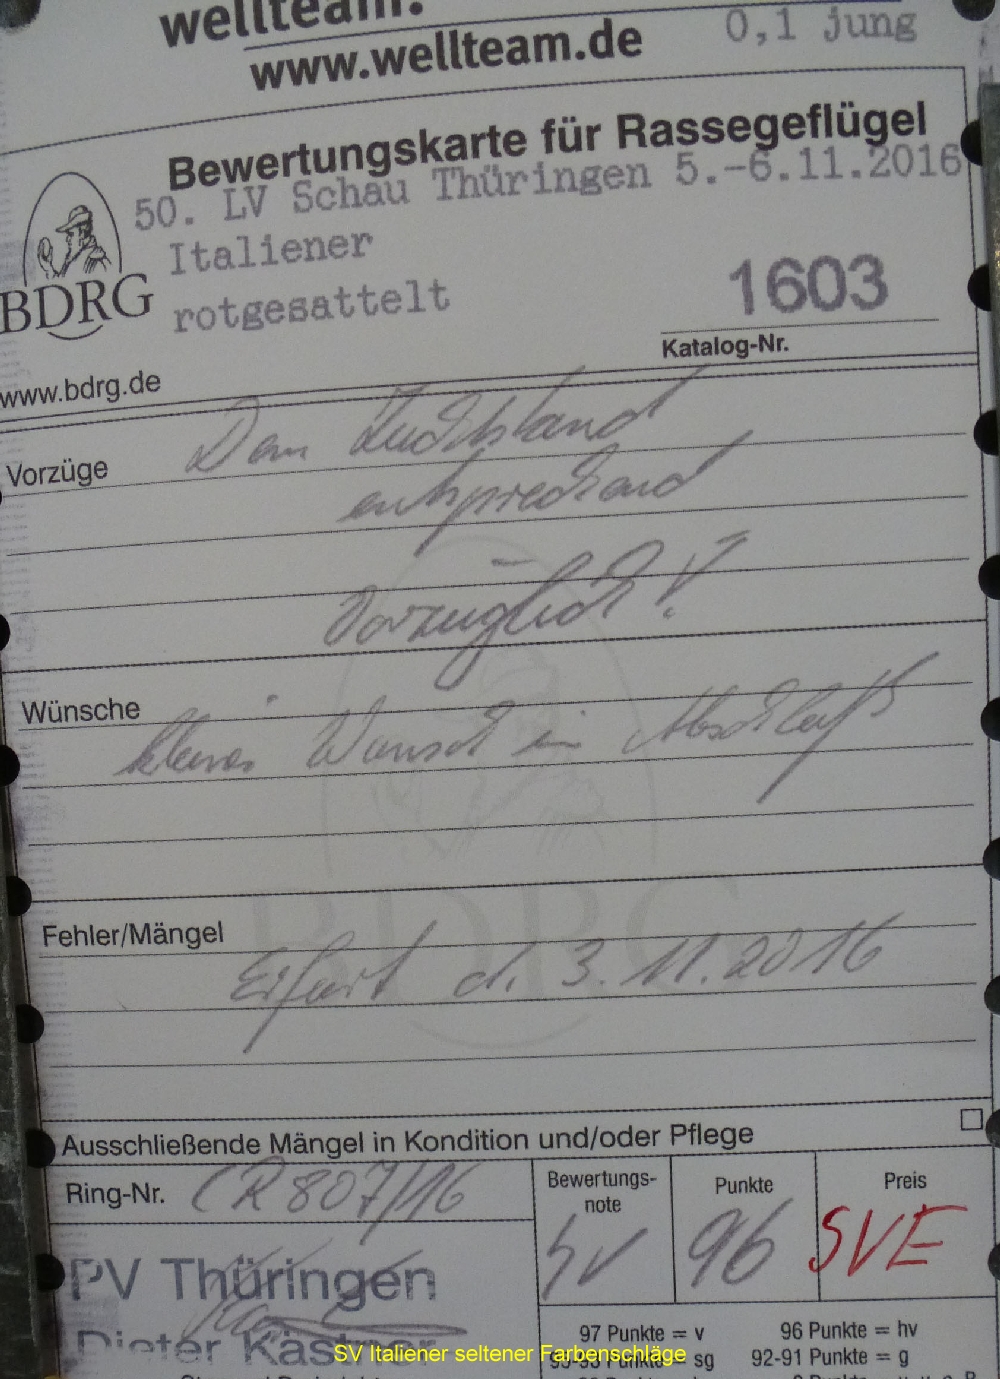 wellteam.
www.wellteam.de
0,1 jung
Bewertungskarte für Rassegeflügel
50. LV Schau Thüringen 5.-6.11.2016
Italiener
rotgesattelt
1603
Katalog-Nr.
BDRG
www.bdrg.de
Vorzüge
Dem Zuchtstand
entsprechend
Vorzüglich!
Wünsche
kleiner Wunsch im Abschluß
BDRG
Fehler/Mängel
Erfurt d. 3.11.2016
Ausschließende Mängel in Kondition und/oder Pflege
Ring-Nr. CR 807/16
Bewertungs-
note
Punkte
Preis
hv
96
SVE
PV Thüringen
Dieter Kästner
97 Punkte = v 96 Punkte = hv
95-93 Punkte = sg 92-91 Punkte = g
SV Italiener seltener Farbenschläge